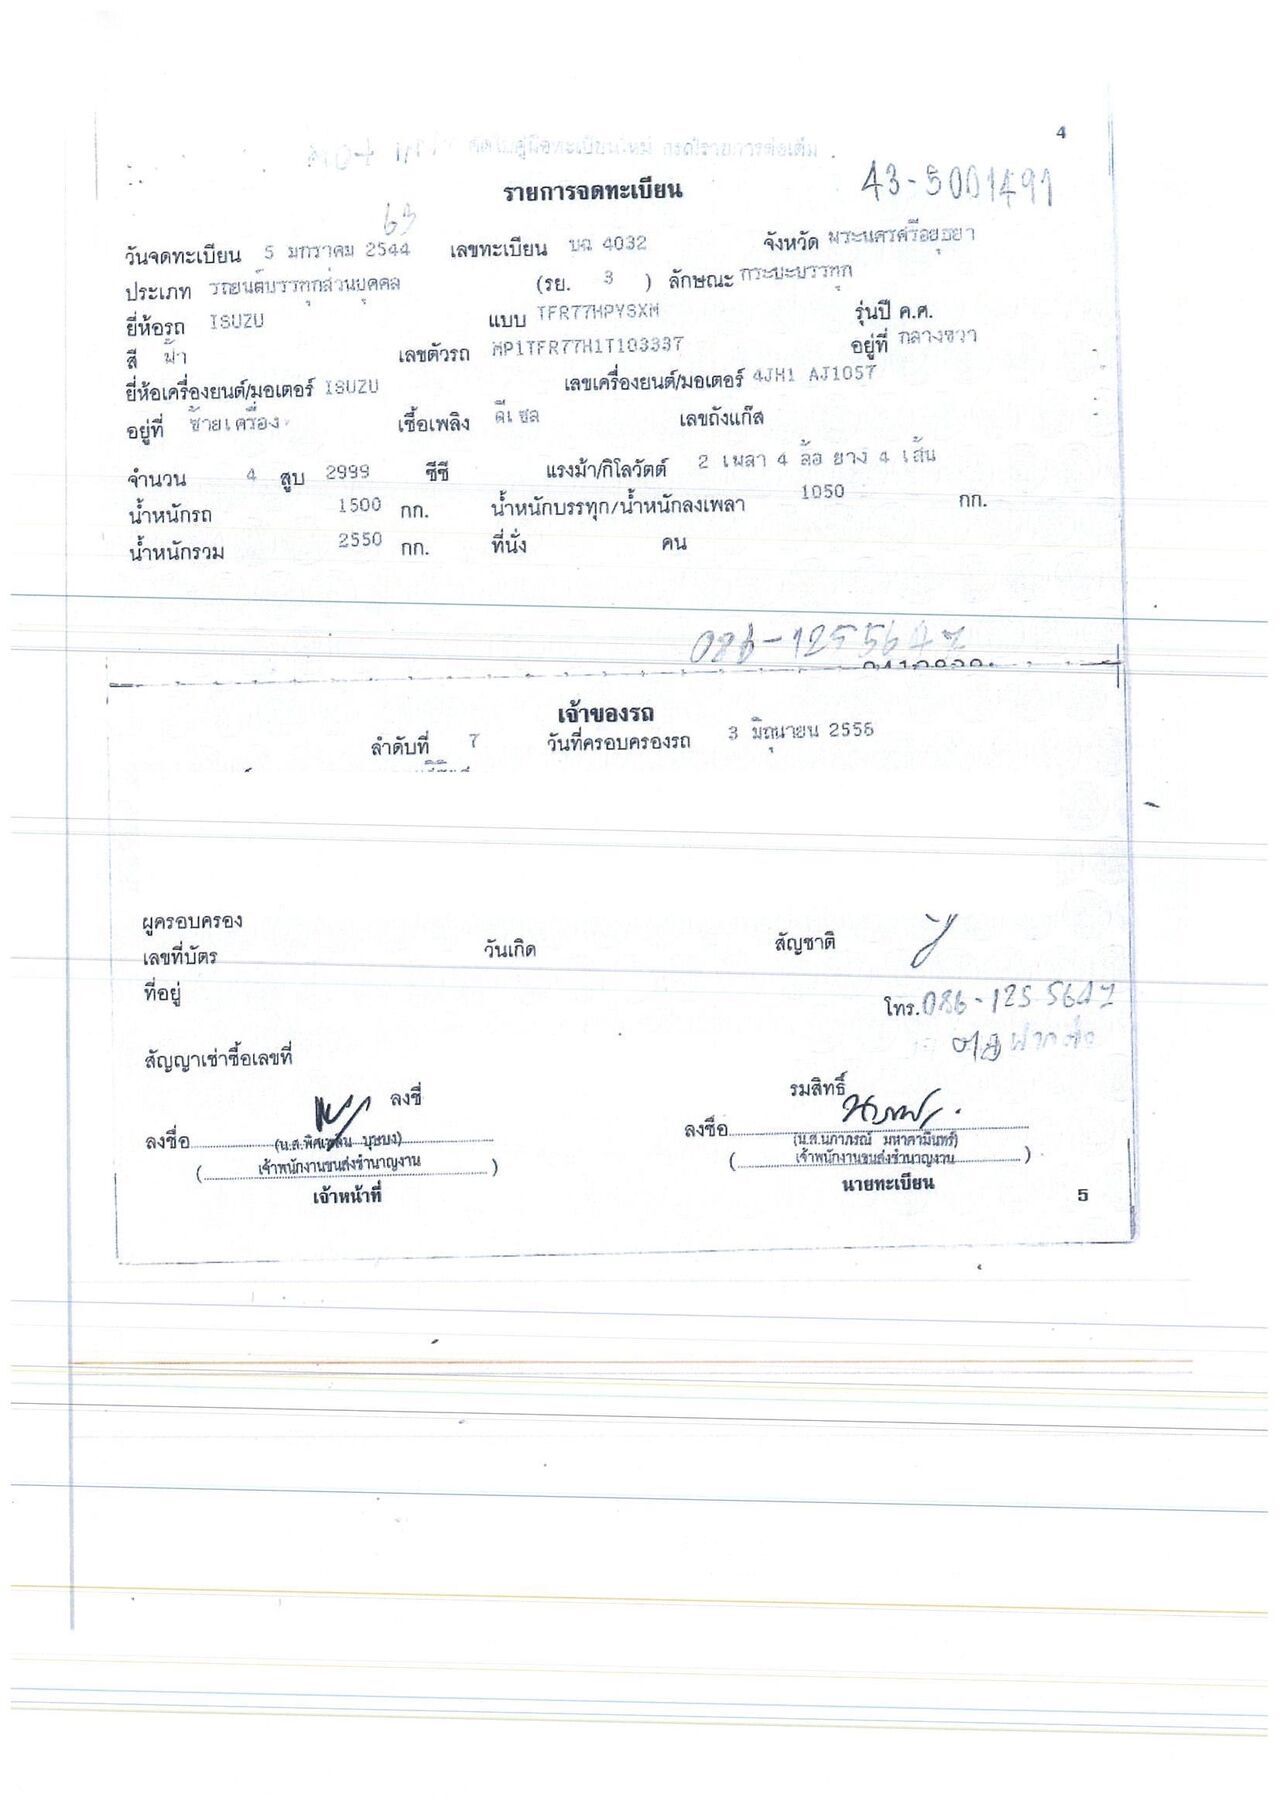 4
ออกใบคู่มือทะเบียนใหม่ กรณีรายการต่อเต็ม
43-5001491
รายการจดทะเบียน
63
วันจดทะเบียน 5 มกราคม 2544 เลขทะเบียน บฉ 4032 จังหวัด พระนครศรีอยุธยา
ประเภท รถยนต์บรรทุกส่วนบุคคล (รย. 3 ) ลักษณะ กระบะบรรทุก
ยี่ห้อรถ ISUZU แบบ TFR77HPYSXM รุ่นปี ค.ศ.
สี ฟ้า เลขตัวรถ MP1TFR77H1T103337 อยู่ที่ กลางขวา
ยี่ห้อเครื่องยนต์/มอเตอร์ ISUZU เลขเครื่องยนต์/มอเตอร์ 4JH1 AJ1057
อยู่ที่ ซ้ายเครื่อง เชื้อเพลิง ดีเซล เลขถังแก๊ส
จำนวน 4 สูบ 2999 ซีซี แรงม้า/กิโลวัตต์ 2 เพลา 4 ล้อ ยาง 4 เส้น
น้ำหนักรถ 1500 กก. น้ำหนักบรรทุก/น้ำหนักลงเพลา 1050 กก.
น้ำหนักรวม 2550 กก. ที่นั่ง คน
086-1255647
เจ้าของรถ
ลำดับที่ 7 วันที่ครอบครองรถ 3 มิถุนายน 2556
ผู้ครอบครอง
เลขที่บัตร วันเกิด สัญชาติ
ที่อยู่
โทร. 086-1255647
สัญญาเช่าซื้อเลขที่
ลงชื่ รมสิทธิ์
ลงชื่อ ลงชื่อ
(น.ส.พิศเพลิน บุษบง) (น.ส.นภาภรณ์ มหาคามินทร์)
(เจ้าพนักงานขนส่งชำนาญงาน) (เจ้าพนักงานขนส่งชำนาญงาน)
เจ้าหน้าที่ นายทะเบียน
5